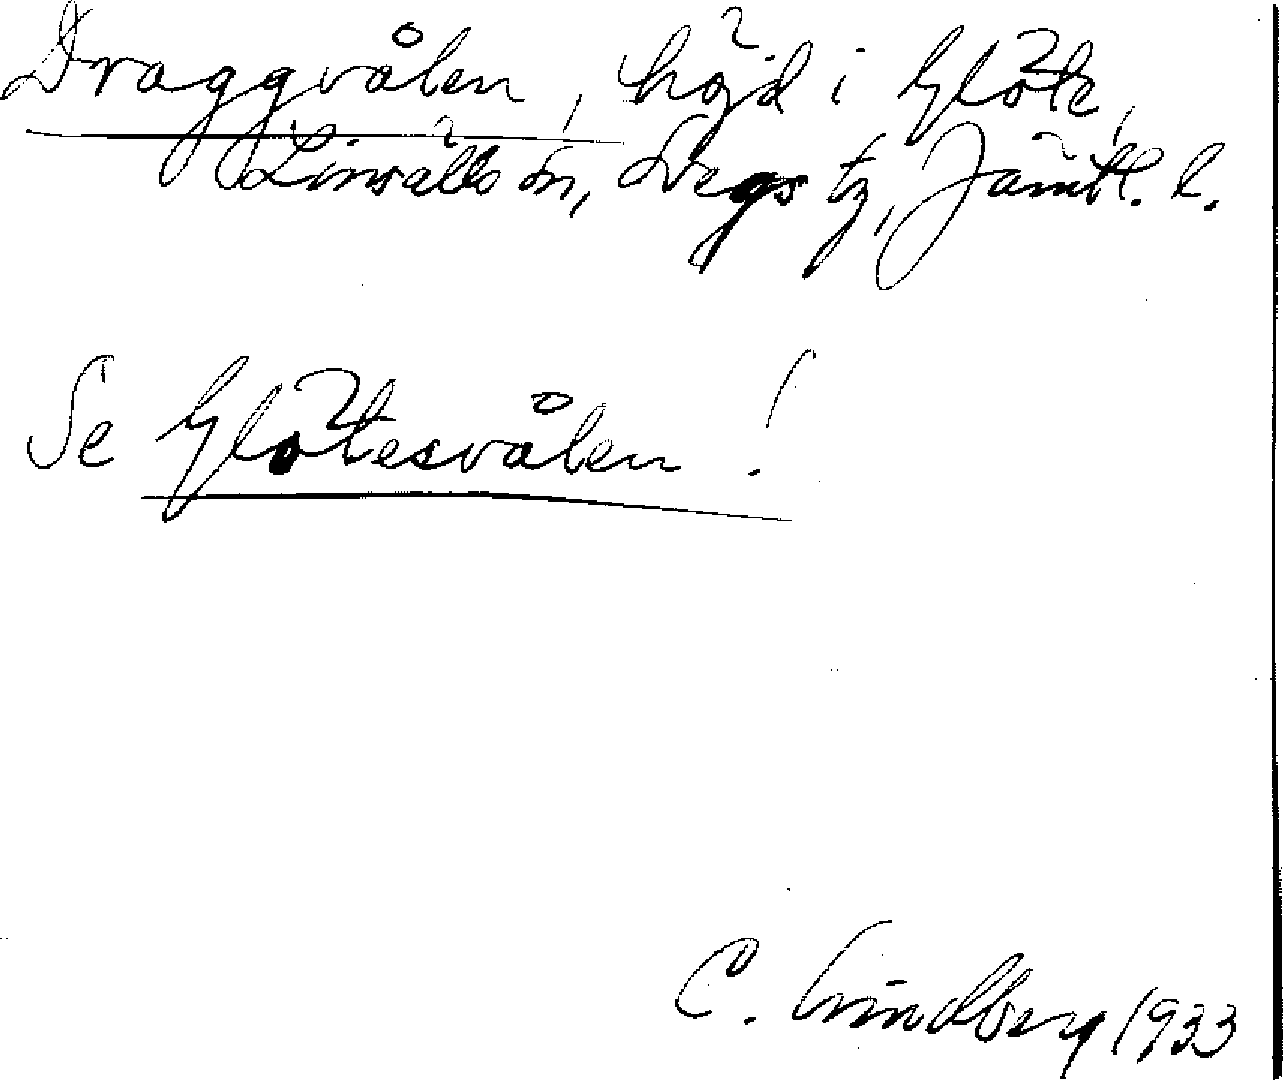 Draggvålen, höjd i Glöte,
Linsälls sn, Svegs tg, Jämtl. l.
Se Glötesvålen!
C. Lindberg 1933